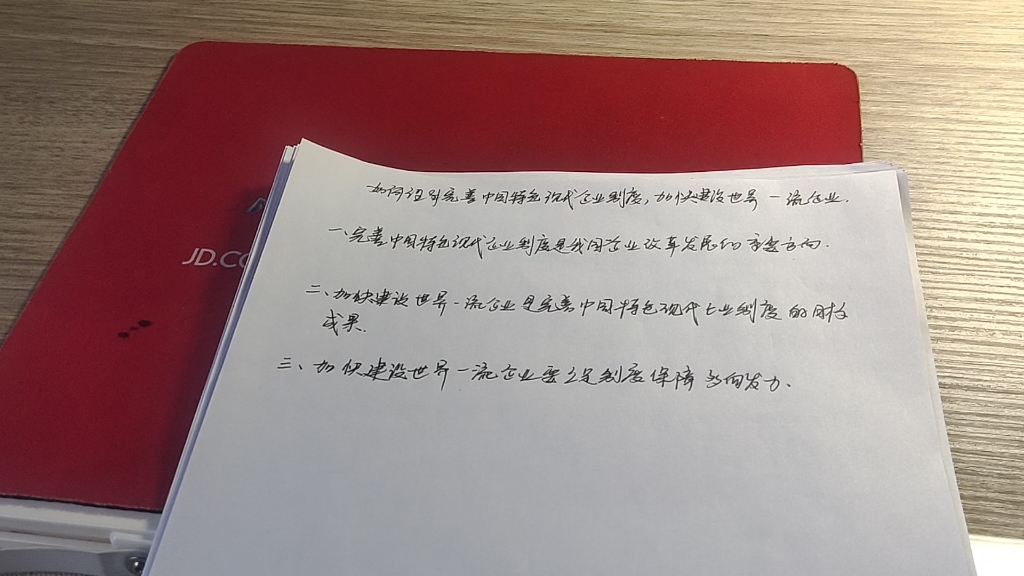 如何认识完善中国特色现代企业制度,加快建设世界一流企业.
一、完善中国特色现代企业制度是我国企业改革发展的重要方向.
JD.CO
二、加快建设世界一流企业是完善中国特色现代企业制度的目标
成果.
三、加快建设世界一流企业要立足制度保障多向发力.